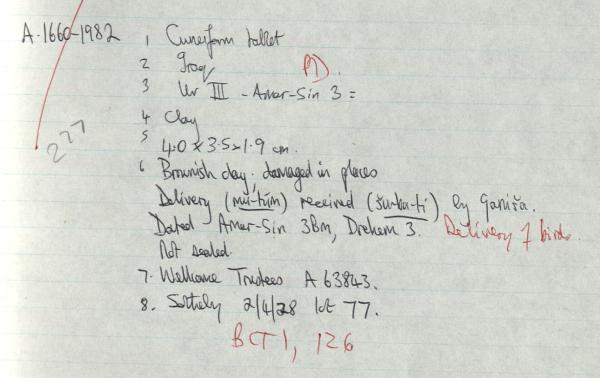 A.1660-1982 1 Cuneiform tablet
2 Iraq PD.
3 Ur III - Amar-Sin 3 =
4 Clay
277
5 4.0 x 3.5 x 1.9 cm.
6 Brownish clay, damaged in places
Delivery (mu-túm) received (šu-ba-ti) by
Dated Amar-Sin 3 8m, Drehem 3. Delivery 7 birds.
Not sealed.
7. Wellcome Trustees A 63843.
8. Sotheby 2/4/28 lot 77.
BCT 1, 126